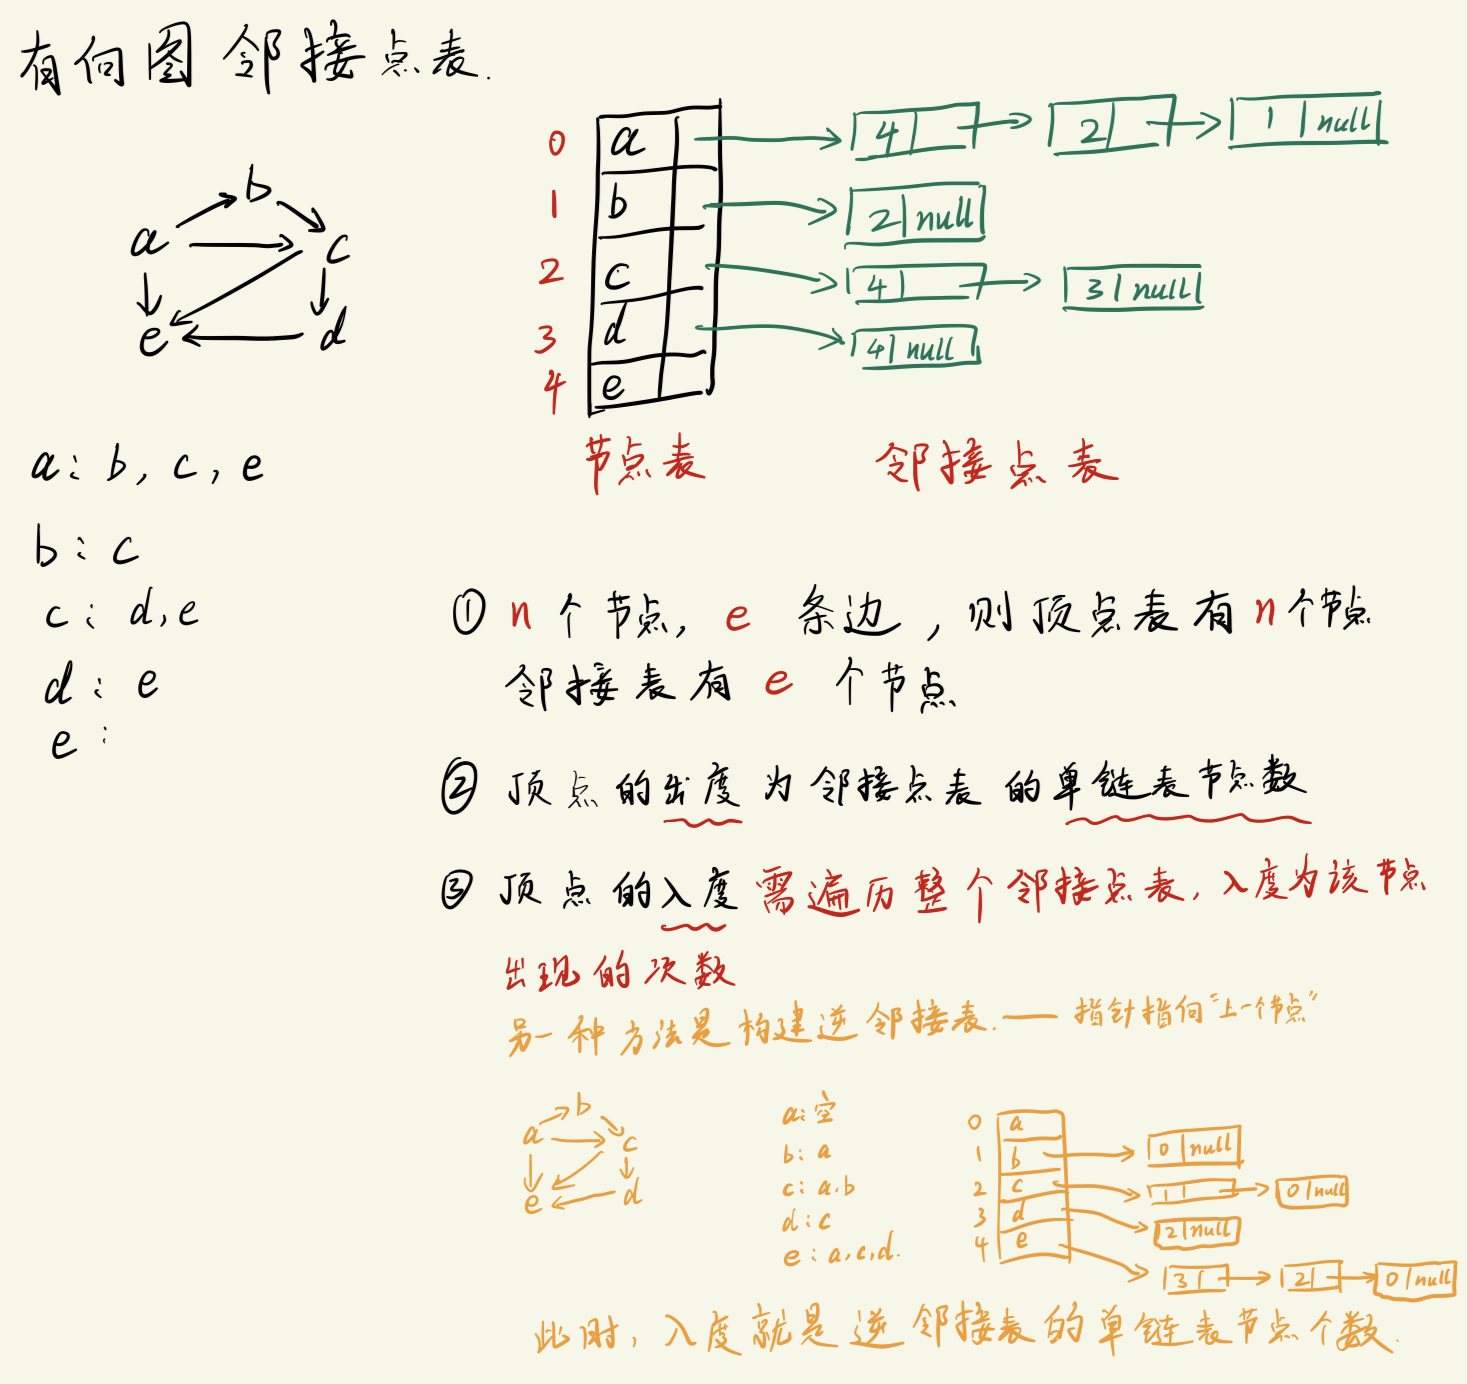 有向图 邻接点表.
b
a
c
e
d
0 a 4 2 1 null
1 b 2 null
2 c 4 3 null
3 d 4 null
4 e
节点表 邻接点表
a: b, c, e
b: c
c: d, e
d: e
e:
① n个节点, e 条边, 则顶点表有n个节点
邻接表有 e 个节点
② 顶点的出度为邻接点表的单链表节点数
③ 顶点的入度需遍历整个邻接点表, 入度为该节点
出现的次数
另一种方法是构建逆邻接表. —— 指针指向"上一个节点"
b
a
c
e
d
a: 空
b: a
c: a, b
d: c
e: a, c, d.
0 a
1 b 0 null
2 c 1 0 null
3 d 2 null
4 e 3 2 0 null
此时, 入度就是逆邻接表的单链表节点个数.